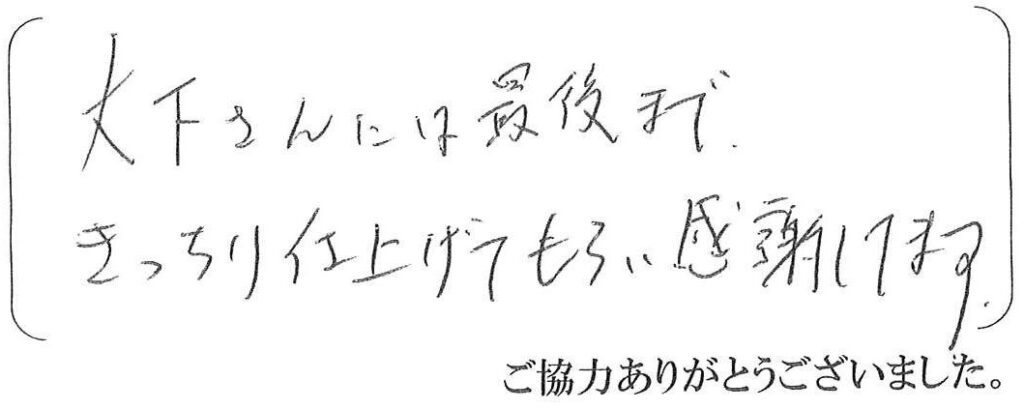 大下さんには最後まで.
きっちり仕上げてもらい感謝してます.
ご協力ありがとうございました。